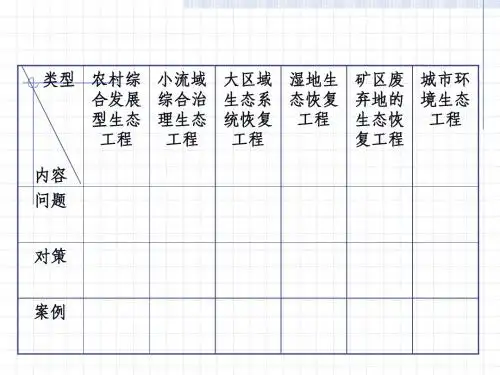 类型
农村综
合发展
型生态
工程
小流域
综合治
理生态
工程
大区域
生态系
统恢复
工程
湿地生
态恢复
工程
矿区废
弃地的
生态恢
复工程
城市环
境生态
工程
内容
问题
对策
案例